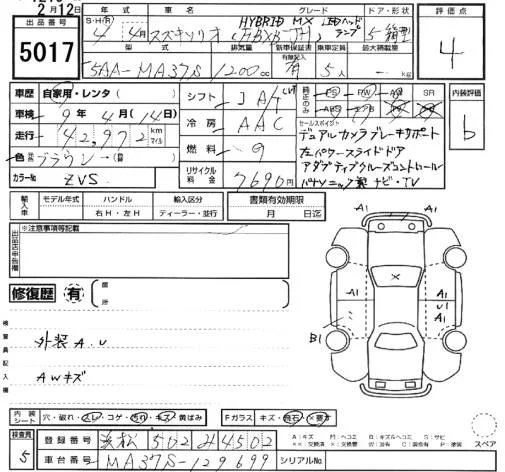 2月12日
5017
年式 車名 グレード ドア・形状 評価点
S・H(R) 4年 4月 スズキソリオ HYBRID MX LEDヘッドランプ 5 箱型
4
型式 排気量 新車保証書 有無記入 乗車定員 最大積載量
5AA-MA37S 1200cc 有 5人 - kg
車歴 自家用・レンタ
車検 9年 4月(14日)
走行 42,972 km マイル
色 ブラウン
カラーNo ZVS
シフト IA/T
冷房 AAC
燃料 9
リサイクル料金 7690円
純正のみ PS PW AW SR
ABS エアB
内装評価
b
セールスポイント
デュアルカメラブレーキサポート
左パワースライドドア
アダプティブクルーズコントロール
パナソニック製ナビ・TV
輸入車 モデル年式 ハンドル 右H・左H 輸入区分 ディーラー・並行
書類有効期限 月 日迄
出品店申告欄 ※注意事項等記載
修復歴 有 箇所
検査員記入欄
外装 A.U
AWキズ
A1 A1
A1
U
A1
B1
内装シート 穴・破れ・スレ・コゲ・汚れ・キズ・黄ばみ Fガラス キズ・飛石
A:キズ M:ヘコミ B:キズ&ヘコミ S:サビ
スペア
検査員 5
登録番号 浜松 502 H 4502
車台番号 MA37S-129699 シリアルNo